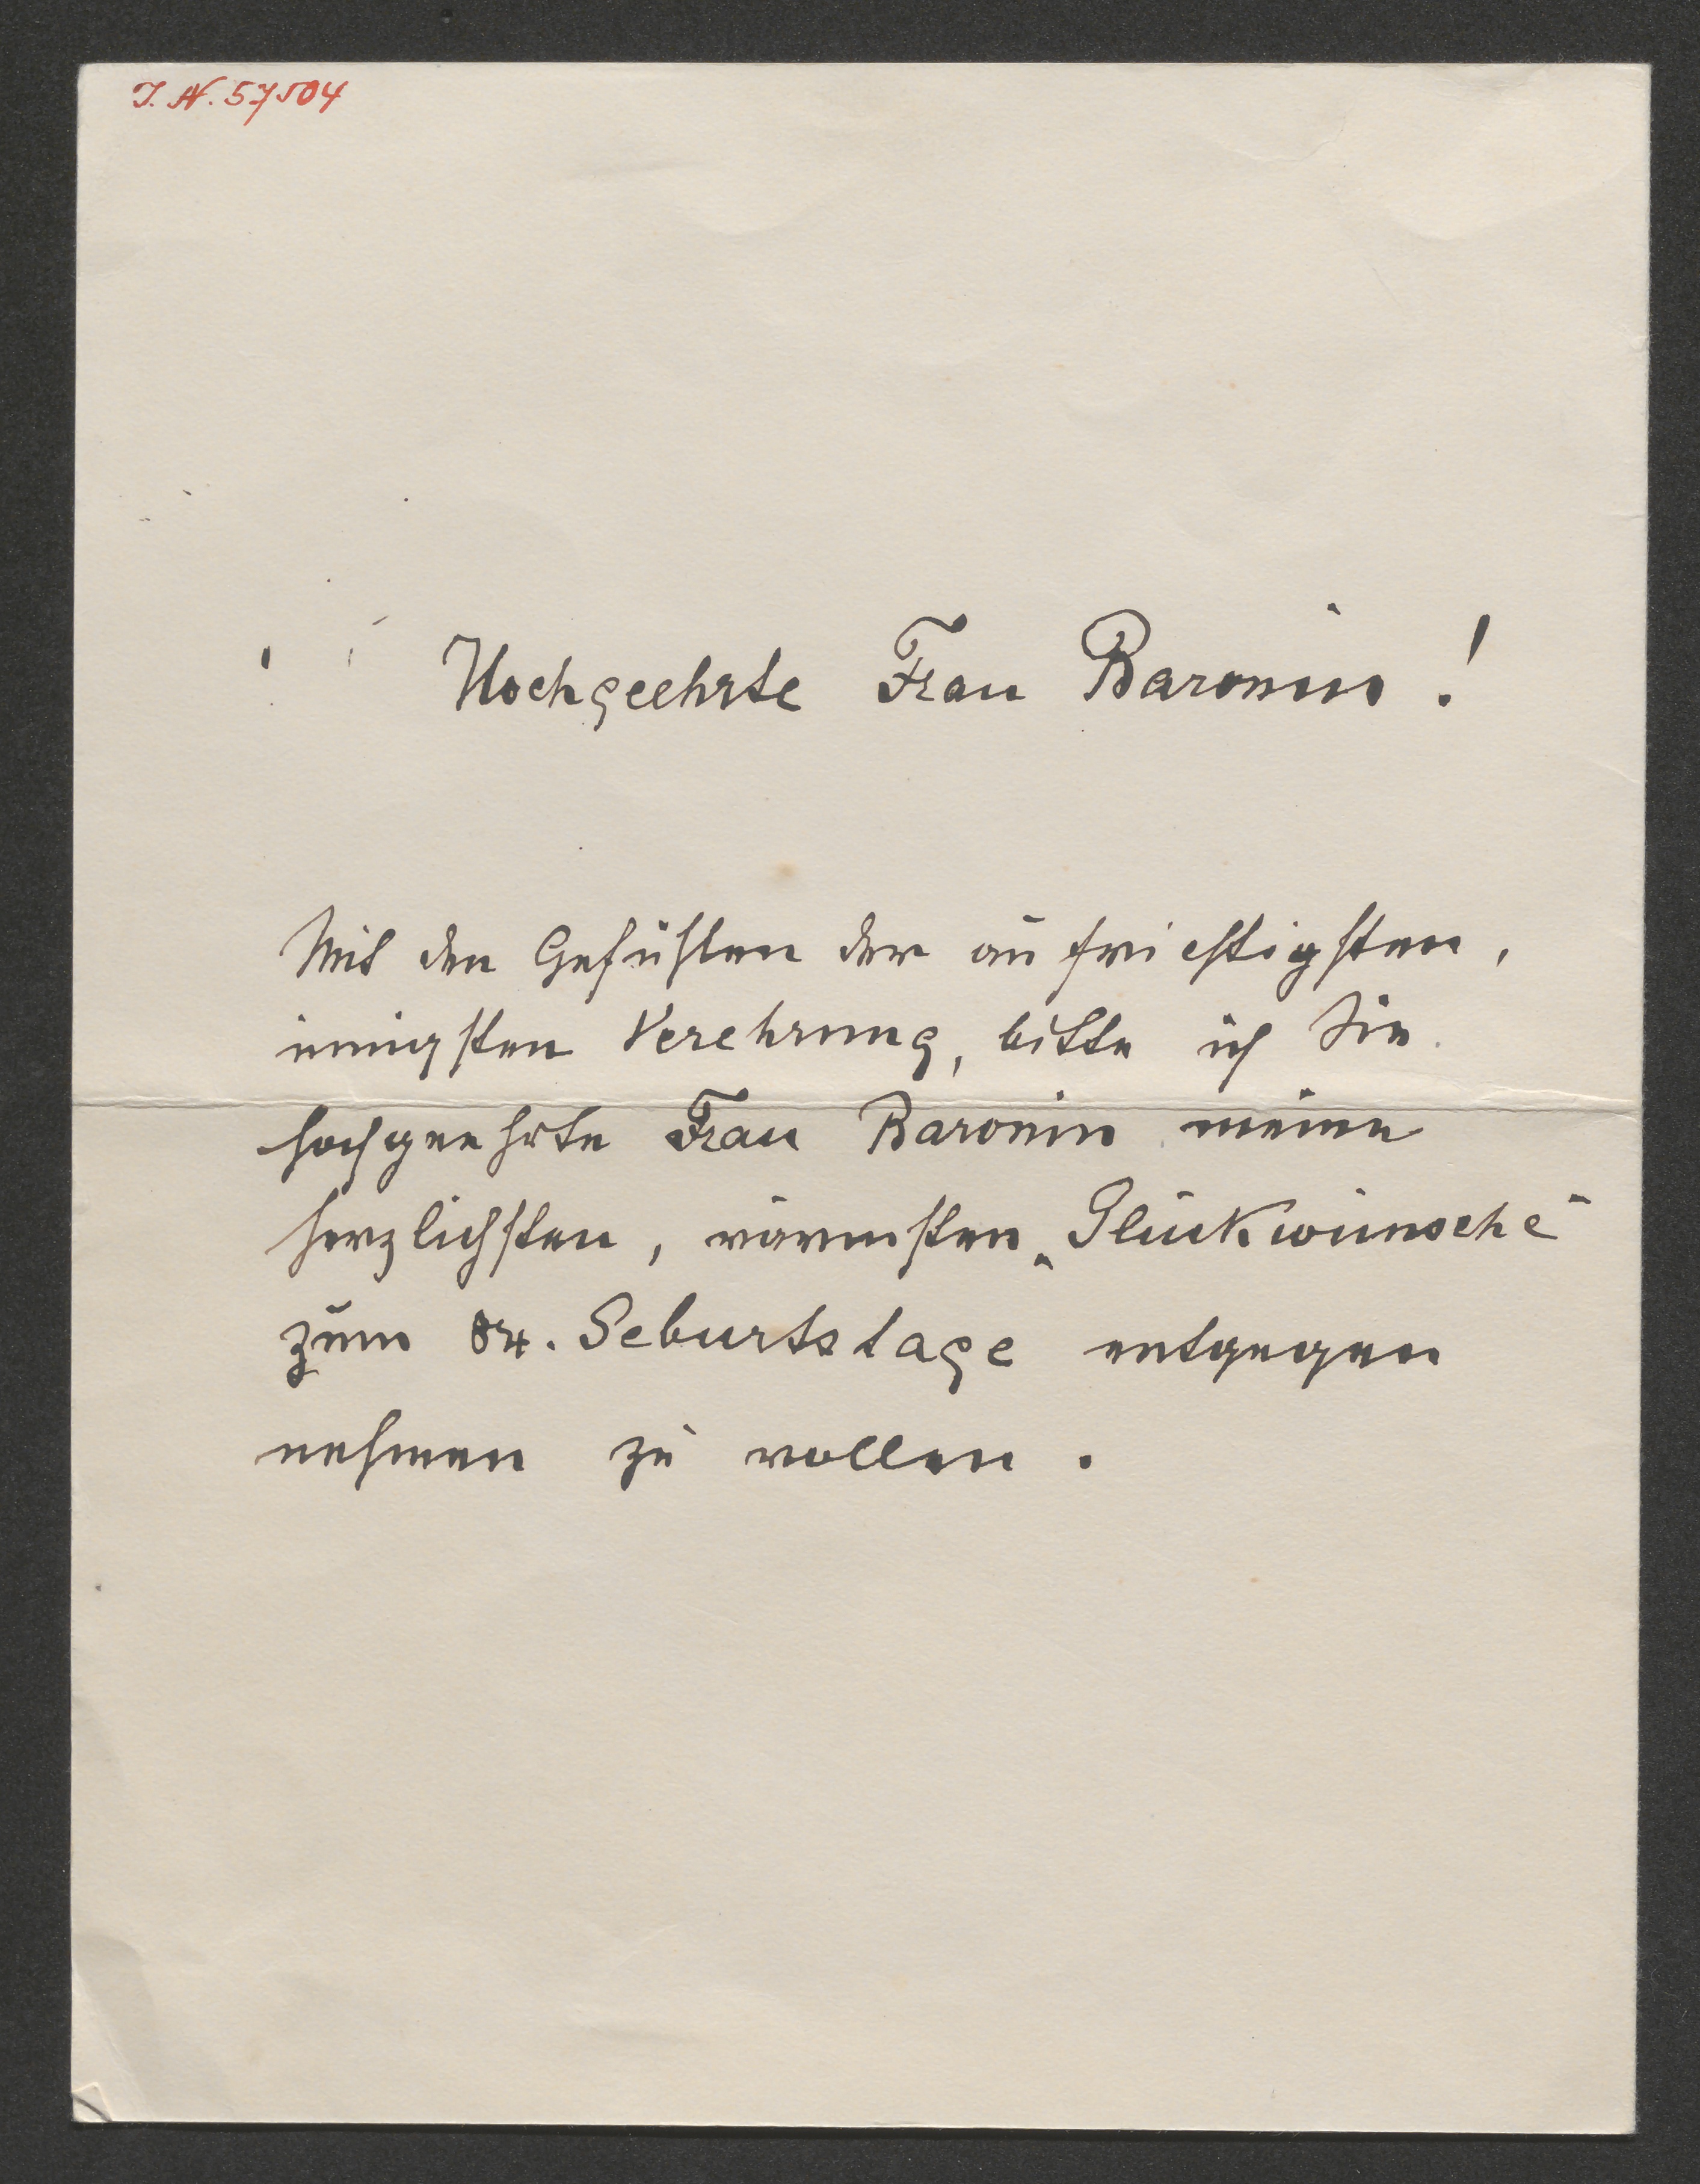 I. N. 57504
Hochgeehrte Frau Baronin!
Mit den Gefühlen der aufrichtigsten,
innigsten Verehrung, bitte ich Sie
hochgeehrte Frau Baronin meine
herzlichsten, wärmsten „Glückwünsche“
zum 84. Geburtstage entgegen
nehmen zu wollen.